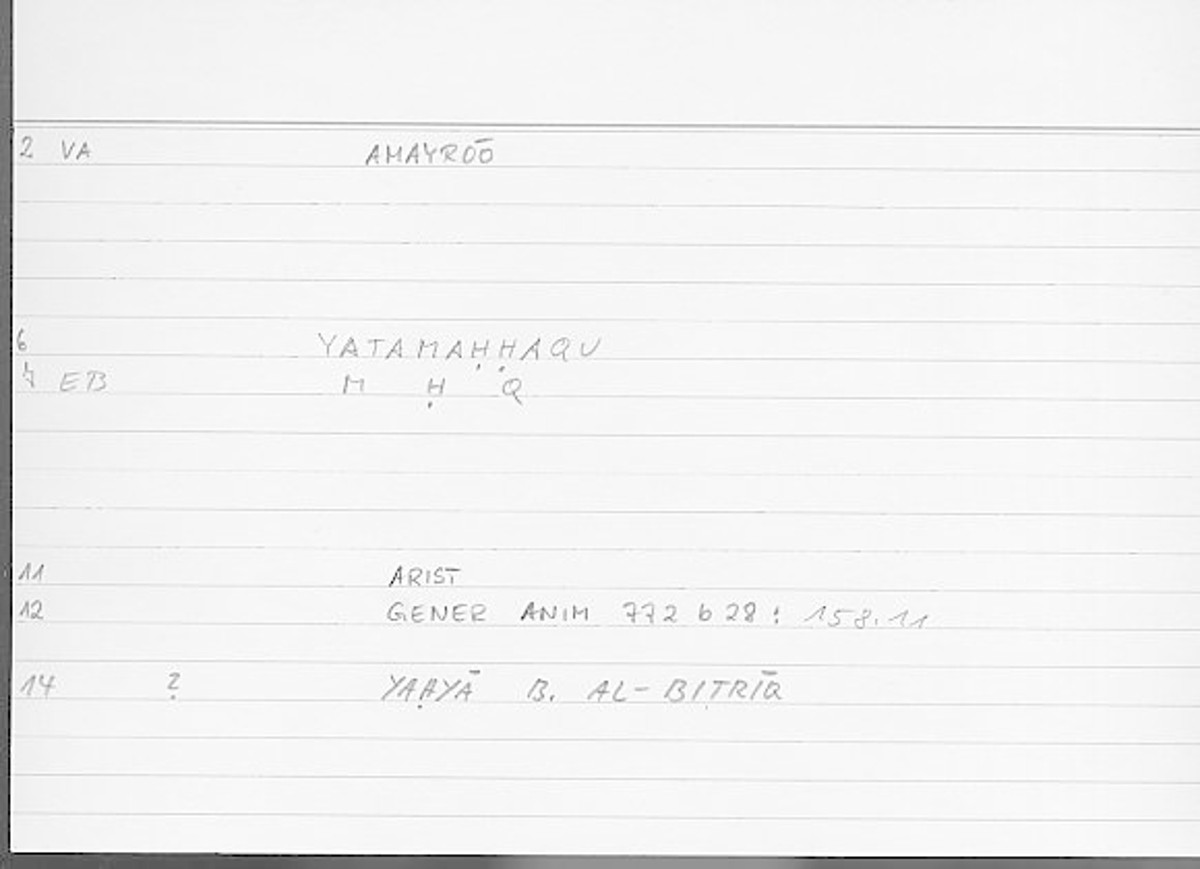 2 VA AMAYROŌ
6 YATAMAḤḤAQU
7 EB M Ḥ Q
11 ARIST
12 GENER ANIM 772 b 28 : 158.11
14 ? YAḤYĀ B. AL-BIṬRĪQ